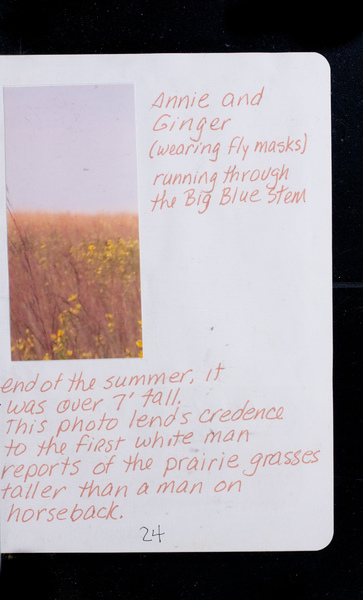 Annie and
Ginger
(wearing fly masks)
running through
the Big Blue Stem
end of the summer, it
was over 7' tall.
This photo lends credence
to the first white man
reports of the prairie grasses
taller than a man on
horseback.
24